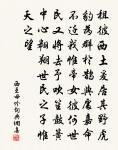 徂彼西土爰居其野虎
豹為群於鵲與處嘉命
不遷我惟帝女彼何世
民又將去子吹笙鼓簧
中心翱翔世民之子惟
天之望
西王母吟詞典網書